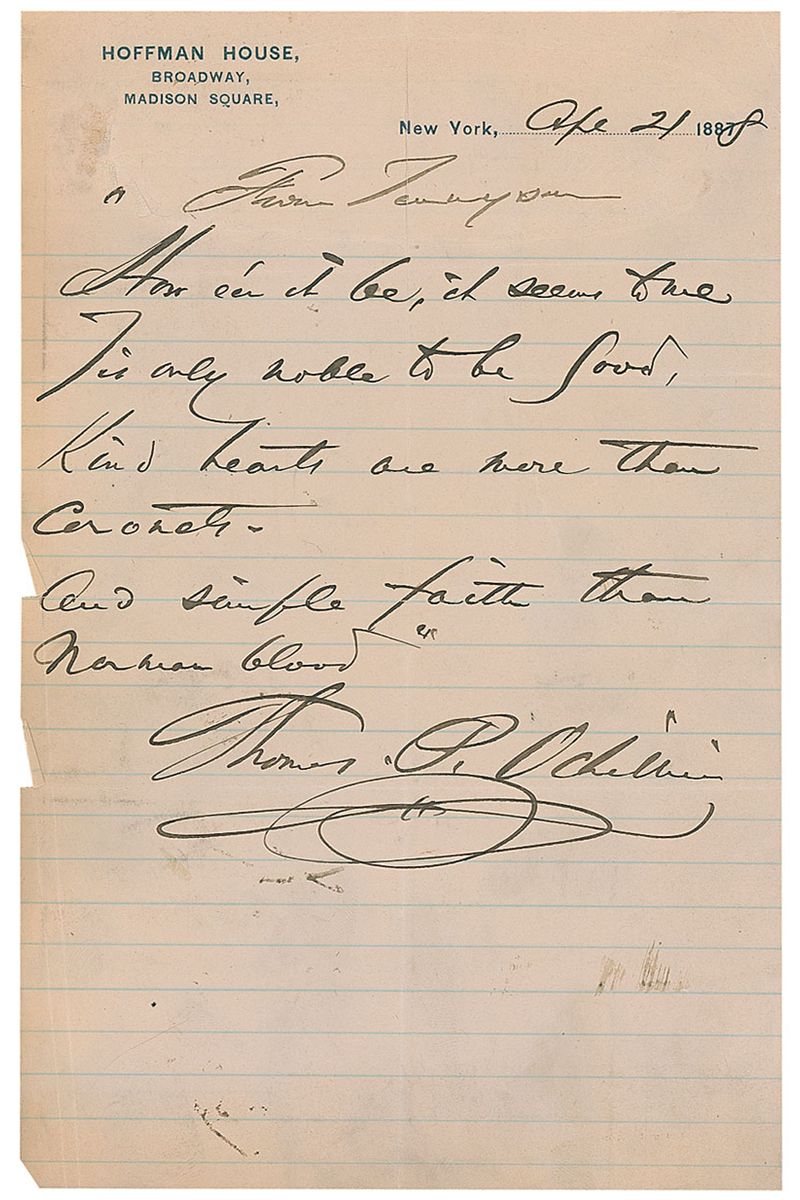 HOFFMAN HOUSE,
BROADWAY,
MADISON SQUARE,
New York, Ape 21 1888
" From Tennyson
How e'er it be, it seems to me
Tis only noble to be Good,
Kind hearts are more than
Coronets -
And simple faith than
Norman blood"
Thomas P. Ochiltree